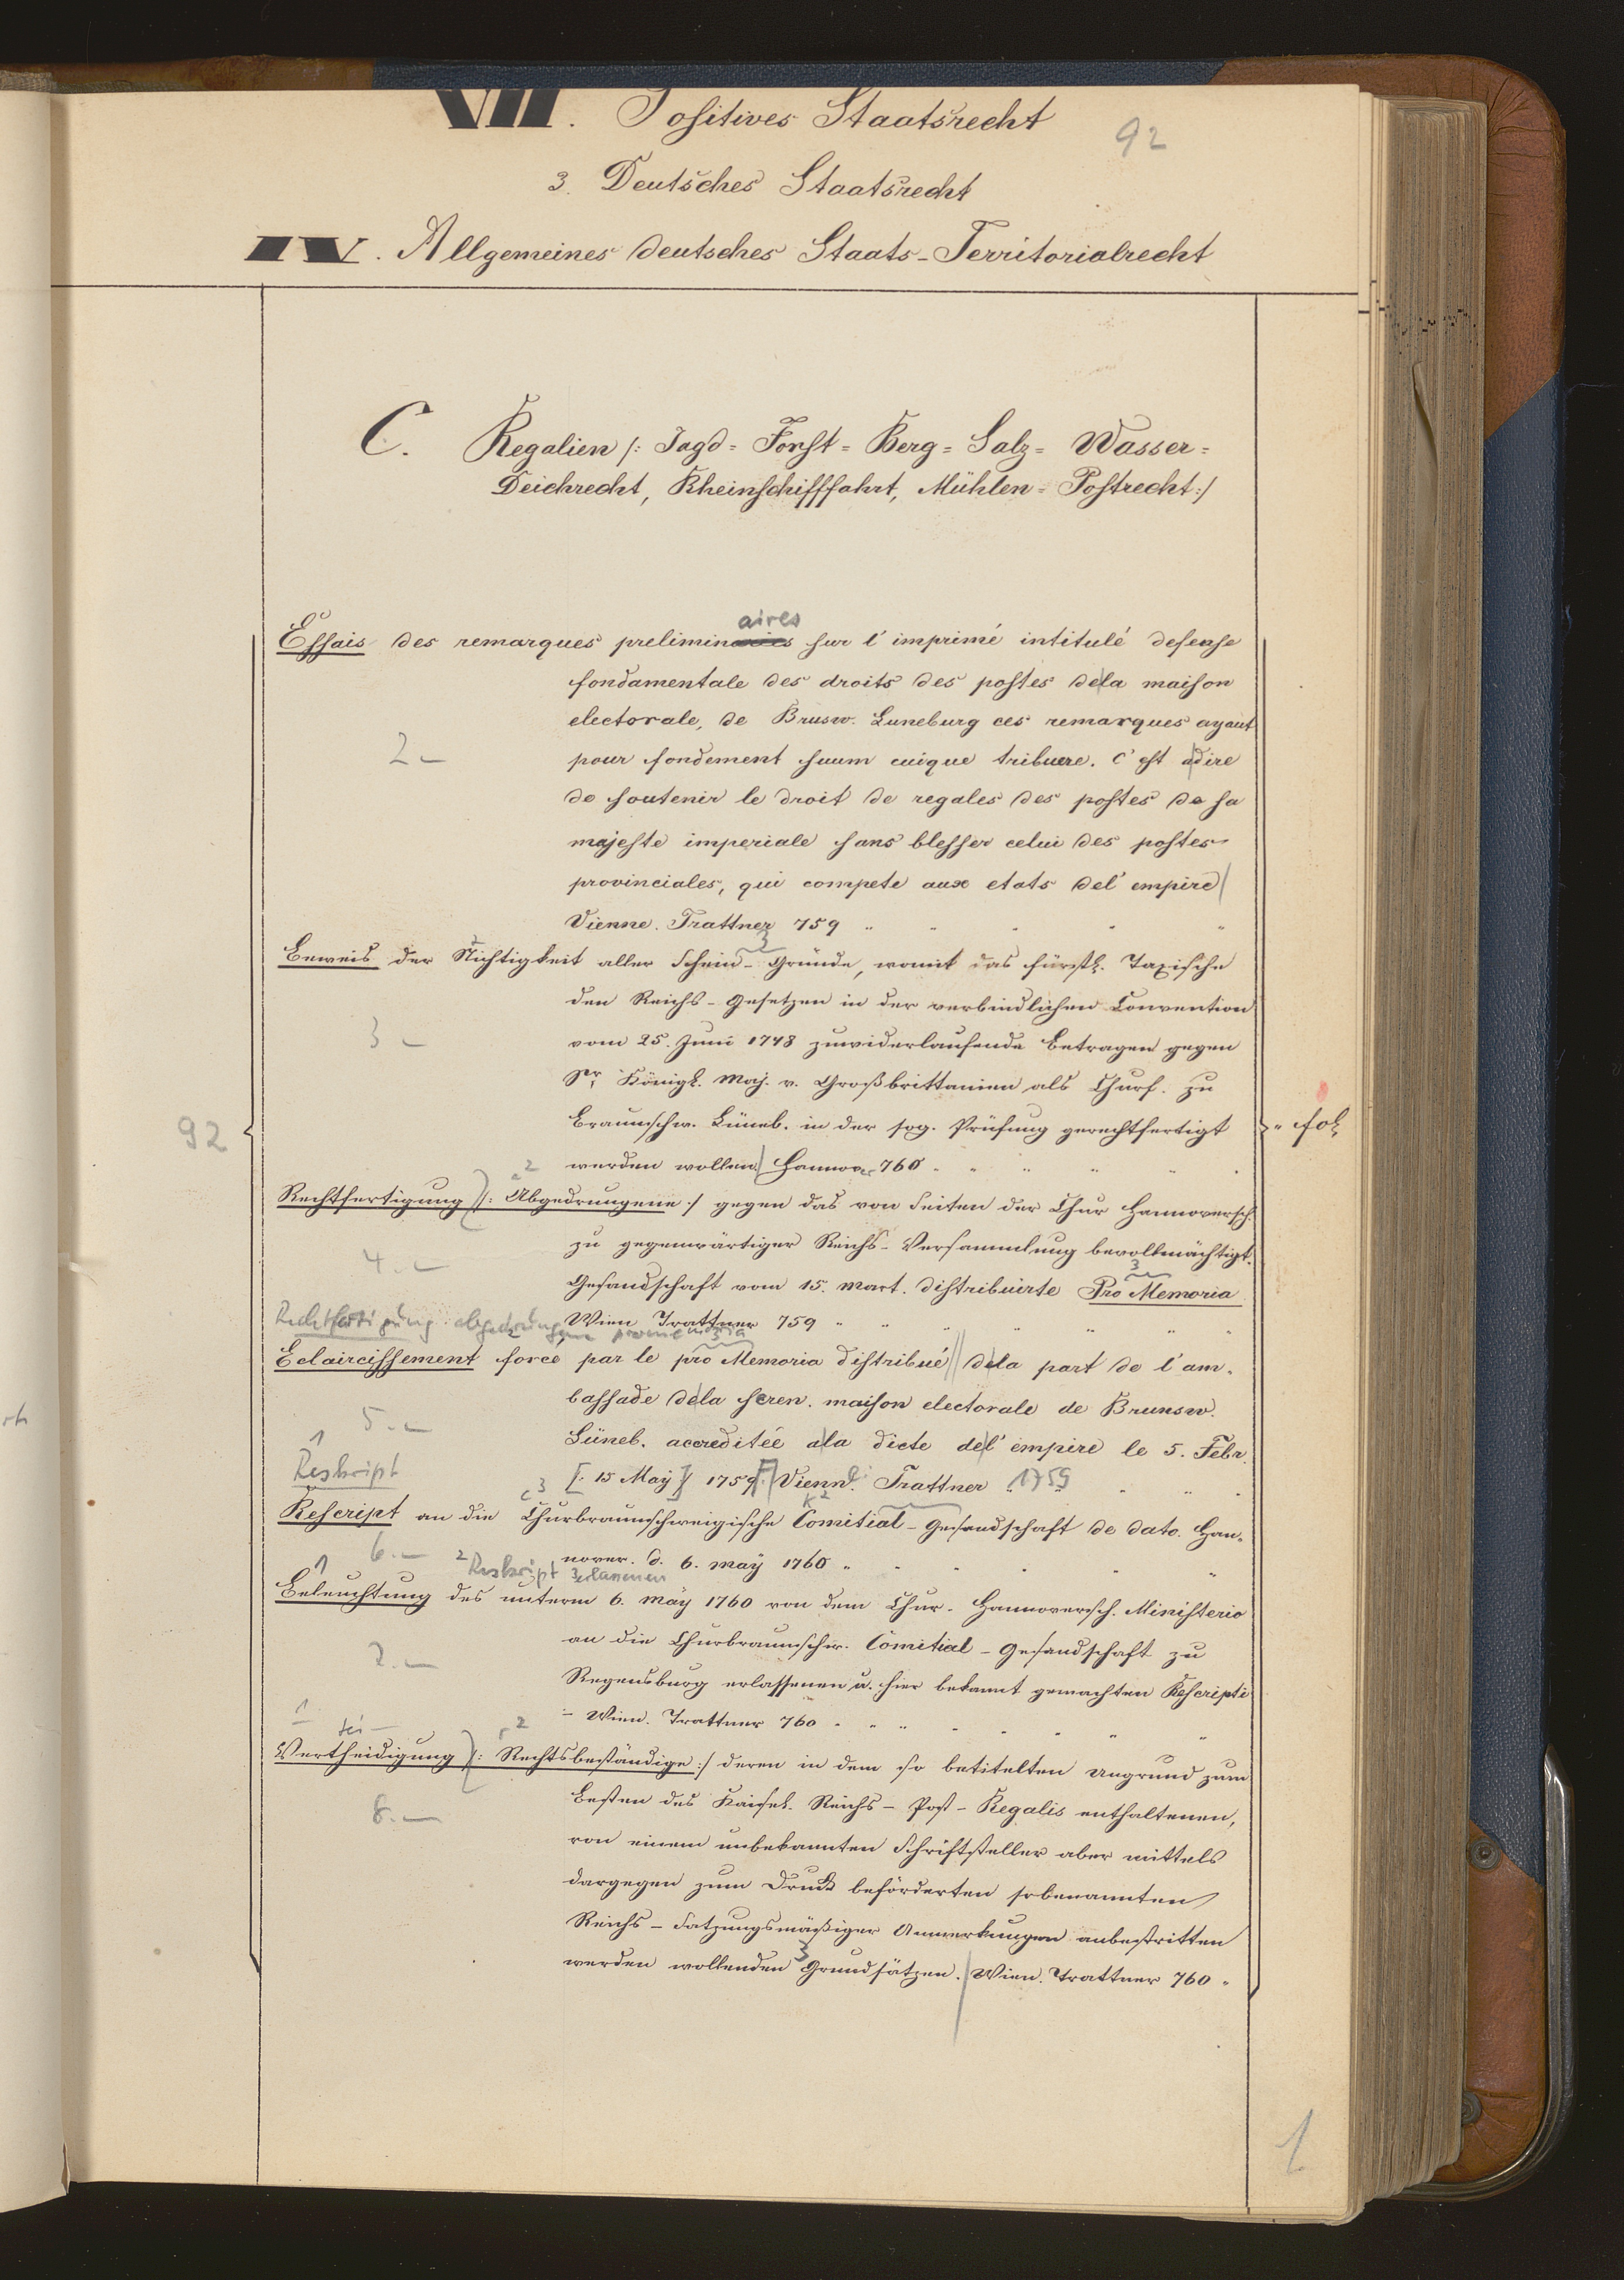 VII. Positives Staatsrecht
92
3. Deutsches Staatsrecht
IV. Allgemeines deutsches Staats-Territorialrecht
C. Regalien /: Jagd= Forst= Berg= Salz= Wasser=
Deichrecht, Rheinschifffahrt, Mühlen= Postrecht :/
aires
Essais des remarques preliminaires sur l'imprimé intitulé defense
fondamentale des droits des postes dela maison
electorale, de Brusw. Luneburg ces remarques ayant
2 – pour fondement suum cuique tribuere. C'est adire
de soutenir le droit de regales des postes de sa
majeste imperiale sans blesser celui des postes
provinciales, qui compete aux etats del'empire
Vienne. Trattner 759 " " " " "
Beweis der Nichtigkeit aller Schein-Gründe, womit das fürstl. Taxische
den Reichs-Gesetzen in der verbindlichen Convention
3 – vom 25. Juni 1748 zuwiderlaufende Betragen gegen
Sr. Königl. Maj. v. Großbrittanien als Churf. zu
92 Braunschw. Lüneb. in der sog. Prüfung gerechtfertigt " fol
werden wollen Hannover 760 " " " " "
2
Rechtfertigung /: Abgedrungene :/ gegen das von Seiten der Chur Hannoversch.
zu gegenwärtiger Reichs-Versammlung bevollmächtigt.
4. – 3
Gesandschaft vom 15. Mart. distribuirte Pro Memoria
Wien Trattner 759 " " " " " "
Rechtfertigung abgedrungene promemoria
Eclaircissement forcé par le pro Memoria distribué dela part de l'am-
bassade dela seren. maison electorale de Brunsw.
5. – Lüneb. accreditée ala diete del'empire le 5. Febr.
1 Reskript
[: 15 Maÿ] 1759 Vienne: Trattner 1759 " " "
3 2
Rescript an die Churbraunschweigische Comitial-Gesandschaft de dato. Han-
6. – nover. d. 6. maÿ 1760 " " " " "
1 2 Reskript 3 erlassenen
Beleuchtung des unterm 6. maÿ 1760 von dem Chur-Hannoversch. Ministerio
an die Churbraunschw. Comitial-Gesandschaft zu
7. – Regensburg erlassenen u. hier bekannt gemachten Rescripti
– Wien. Trattner 760 " " " " " " "
1 2
Vertheidigung /: Rechtsbeständige :/ deren in dem so betitelten Ungrund zum
8. – Besten des Kaiserl. Reichs-Post-Regalis enthaltenen,
von einem unbekannten Schriftsteller aber mittels
dargegen zum Druck beförderten sobenannten
Reichs-Satzungsmäßiger Anmerkungen anbestritten
3
werden wollenden Grundsätzen. Wien. Trattner 760 "
1